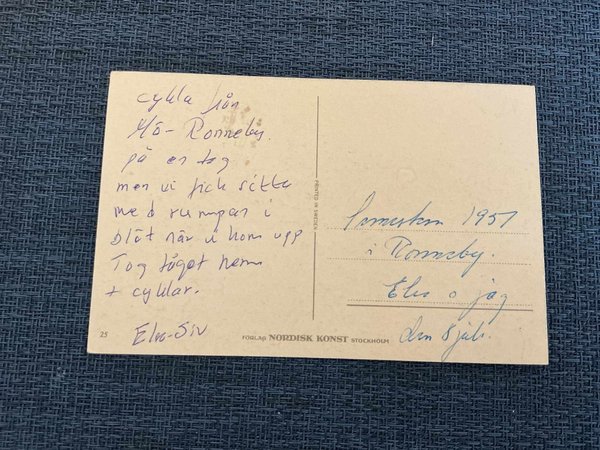 cykla från
Hö-Ronneby.
på en dag
men vi fick sitta
med rumpan i
blöt när vi kom upp
Tog tåget hem
+ cyklar.
Elva-Siv
25
PRINTED IN SWEDEN
FÖRLAG NORDISK KONST STOCKHOLM
Semestern 1951
i Ronneby.
Elva o jag
den 8 juli.